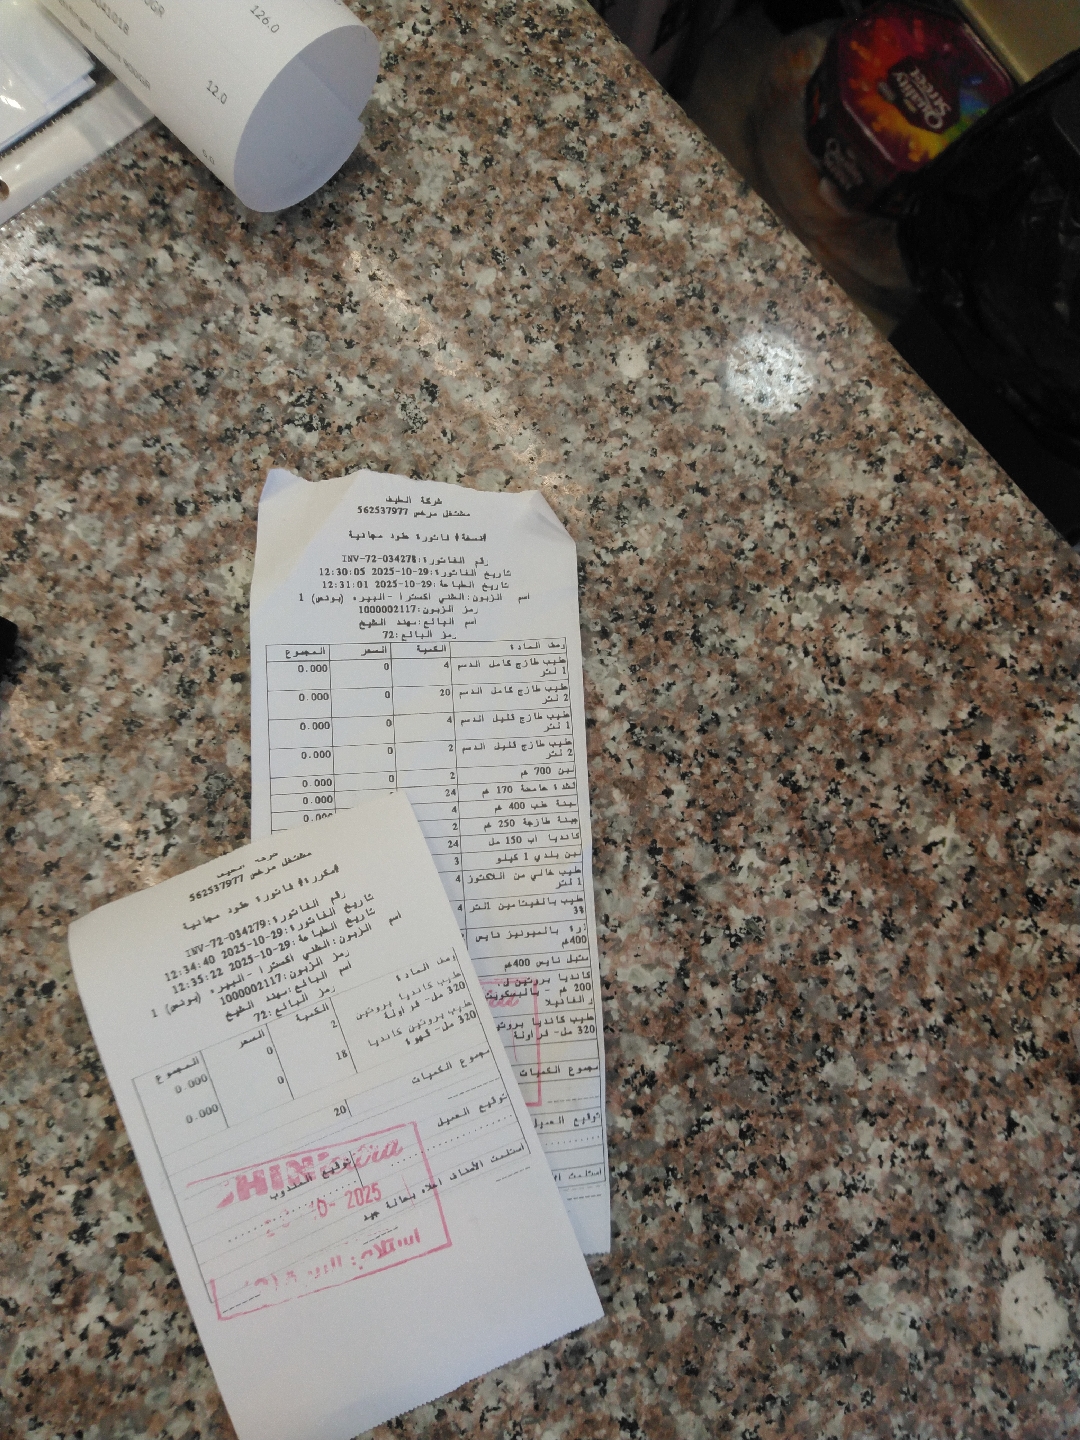 126.0
12.0
QUALITY
STREET
شركة الطيف
مشتغل مرخص 562537977
#نسخة# فاتورة طود مجانية
رقم الفاتورة:INV-72-034278
تاريخ الفاتورة:29-10-2025 12:30:05
تاريخ الطباعة:29-10-2025 12:31:01
اسم الزبون:الظني اكسترا - البيره (بونص) 1
رمز الزبون:1000002117
اسم البائع:مهند الطيخ
رمز البائع:72
وصف المادة الكمية السعر المجموع
حليب طازج كامل الدسم 4 0 0.000
1 لتر
حليب طازج كامل الدسم 20 0 0.000
2 لتر
حليب طازج قليل الدسم 4 0 0.000
1 لتر
حليب طازج قليل الدسم 2 0 0.000
2 لتر
لبن 700 غم 2 0 0.000
قشدة حامضة 170 غم 24 0.000
جبنة علب 400 غم 4
جبنة طازجة 250 غم 2
كانديا اب 150 مل 24
لبن بلدي 1 كيلو 3
حليب خالي من اللاكتوز 4
1 لتر
حليب بالفيتامين 4
3%
ذرة بالميونيز نايس
400غم
نايس 400غم
كانديا بروتين
200 غم - بالبسكويت
والفانيلا
حليب كانديا بروتين
320 مل- فراولة
مجموع الكميات
توقيع العميل
مشتغل مرخص 562537977
#مكررة# فاتورة طود مجانية
رقم الفاتورة:INV-72-034279
تاريخ الفاتورة:29-10-2025 12:34:40
تاريخ الطباعة:29-10-2025 12:35:22
اسم الزبون:الظني اكسترا - البيره (بونص) 1
رمز الزبون:1000002117
اسم البائع:مهند الطيخ
رمز البائع:72
وصف المادة الكمية السعر المجموع
حليب كانديا بروتين 2 0 0.000
320 مل- فراولة
حليب بروتين كانديا 18 0 0.000
320 مل- قهوة
مجموع الكميات 20
توقيع العميل
توقيع المندوب
استلمت الأصناف اعلاه بحالة جيد
2025